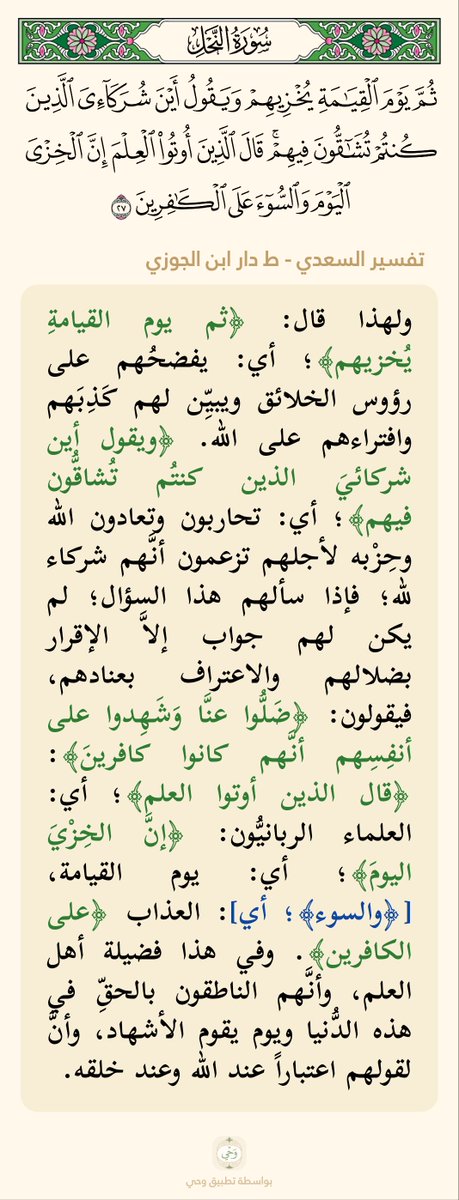 سُورَةُ النَّحۡلِ
ثُمَّ يَوۡمَ ٱلۡقِيَٰمَةِ يُخۡزِيهِمۡ وَيَقُولُ أَيۡنَ شُرَكَآءِيَ ٱلَّذِينَ
كُنتُمۡ تُشَٰٓقُّونَ فِيهِمۡۚ قَالَ ٱلَّذِينَ أُوتُواْ ٱلۡعِلۡمَ إِنَّ ٱلۡخِزۡيَ
ٱلۡيَوۡمَ وَٱلسُّوٓءَ عَلَى ٱلۡكَٰفِرِينَ ٢٧
تفسير السعدي - ط دار ابن الجوزي
ولهذا قال: ﴿ثم يوم القيامةِ
يُخزيهم﴾؛ أي: يفضحُهم على
رؤوس الخلائق ويبيِّن لهم كَذِبَهم
وافتراءهم على الله. ﴿ويقول أين
شركائيَ الذين كنتُم تُشاقُّون
فيهم﴾؛ أي: تحاربون وتعادون الله
وحِزْبه لأجلهم تزعمون أنَّهم شركاء
لله؛ فإذا سألهم هذا السؤال؛ لم
يكن لهم جواب إلاَّ الإقرار
بضلالهم والاعتراف بعنادهم،
فيقولون: ﴿ضَلُّوا عنَّا وَشَهِدوا على
أنفِسِهم أنَّهم كانوا كافرينَ﴾:
﴿قال الذين أوتوا العلم﴾؛ أي:
العلماء الربانيُّون: ﴿إنَّ الخِزْيَ
اليومَ﴾؛ أي: يوم القيامة،
[﴿والسوء﴾؛ أي]: العذاب ﴿على
الكافرين﴾. وفي هذا فضيلة أهل
العلم، وأنَّهم الناطقون بالحقِّ في
هذه الدُّنيا ويوم يقوم الأشهاد، وأنَّ
لقولهم اعتباراً عند الله وعند خلقه.
وَحْي
بواسطة تطبيق وحي